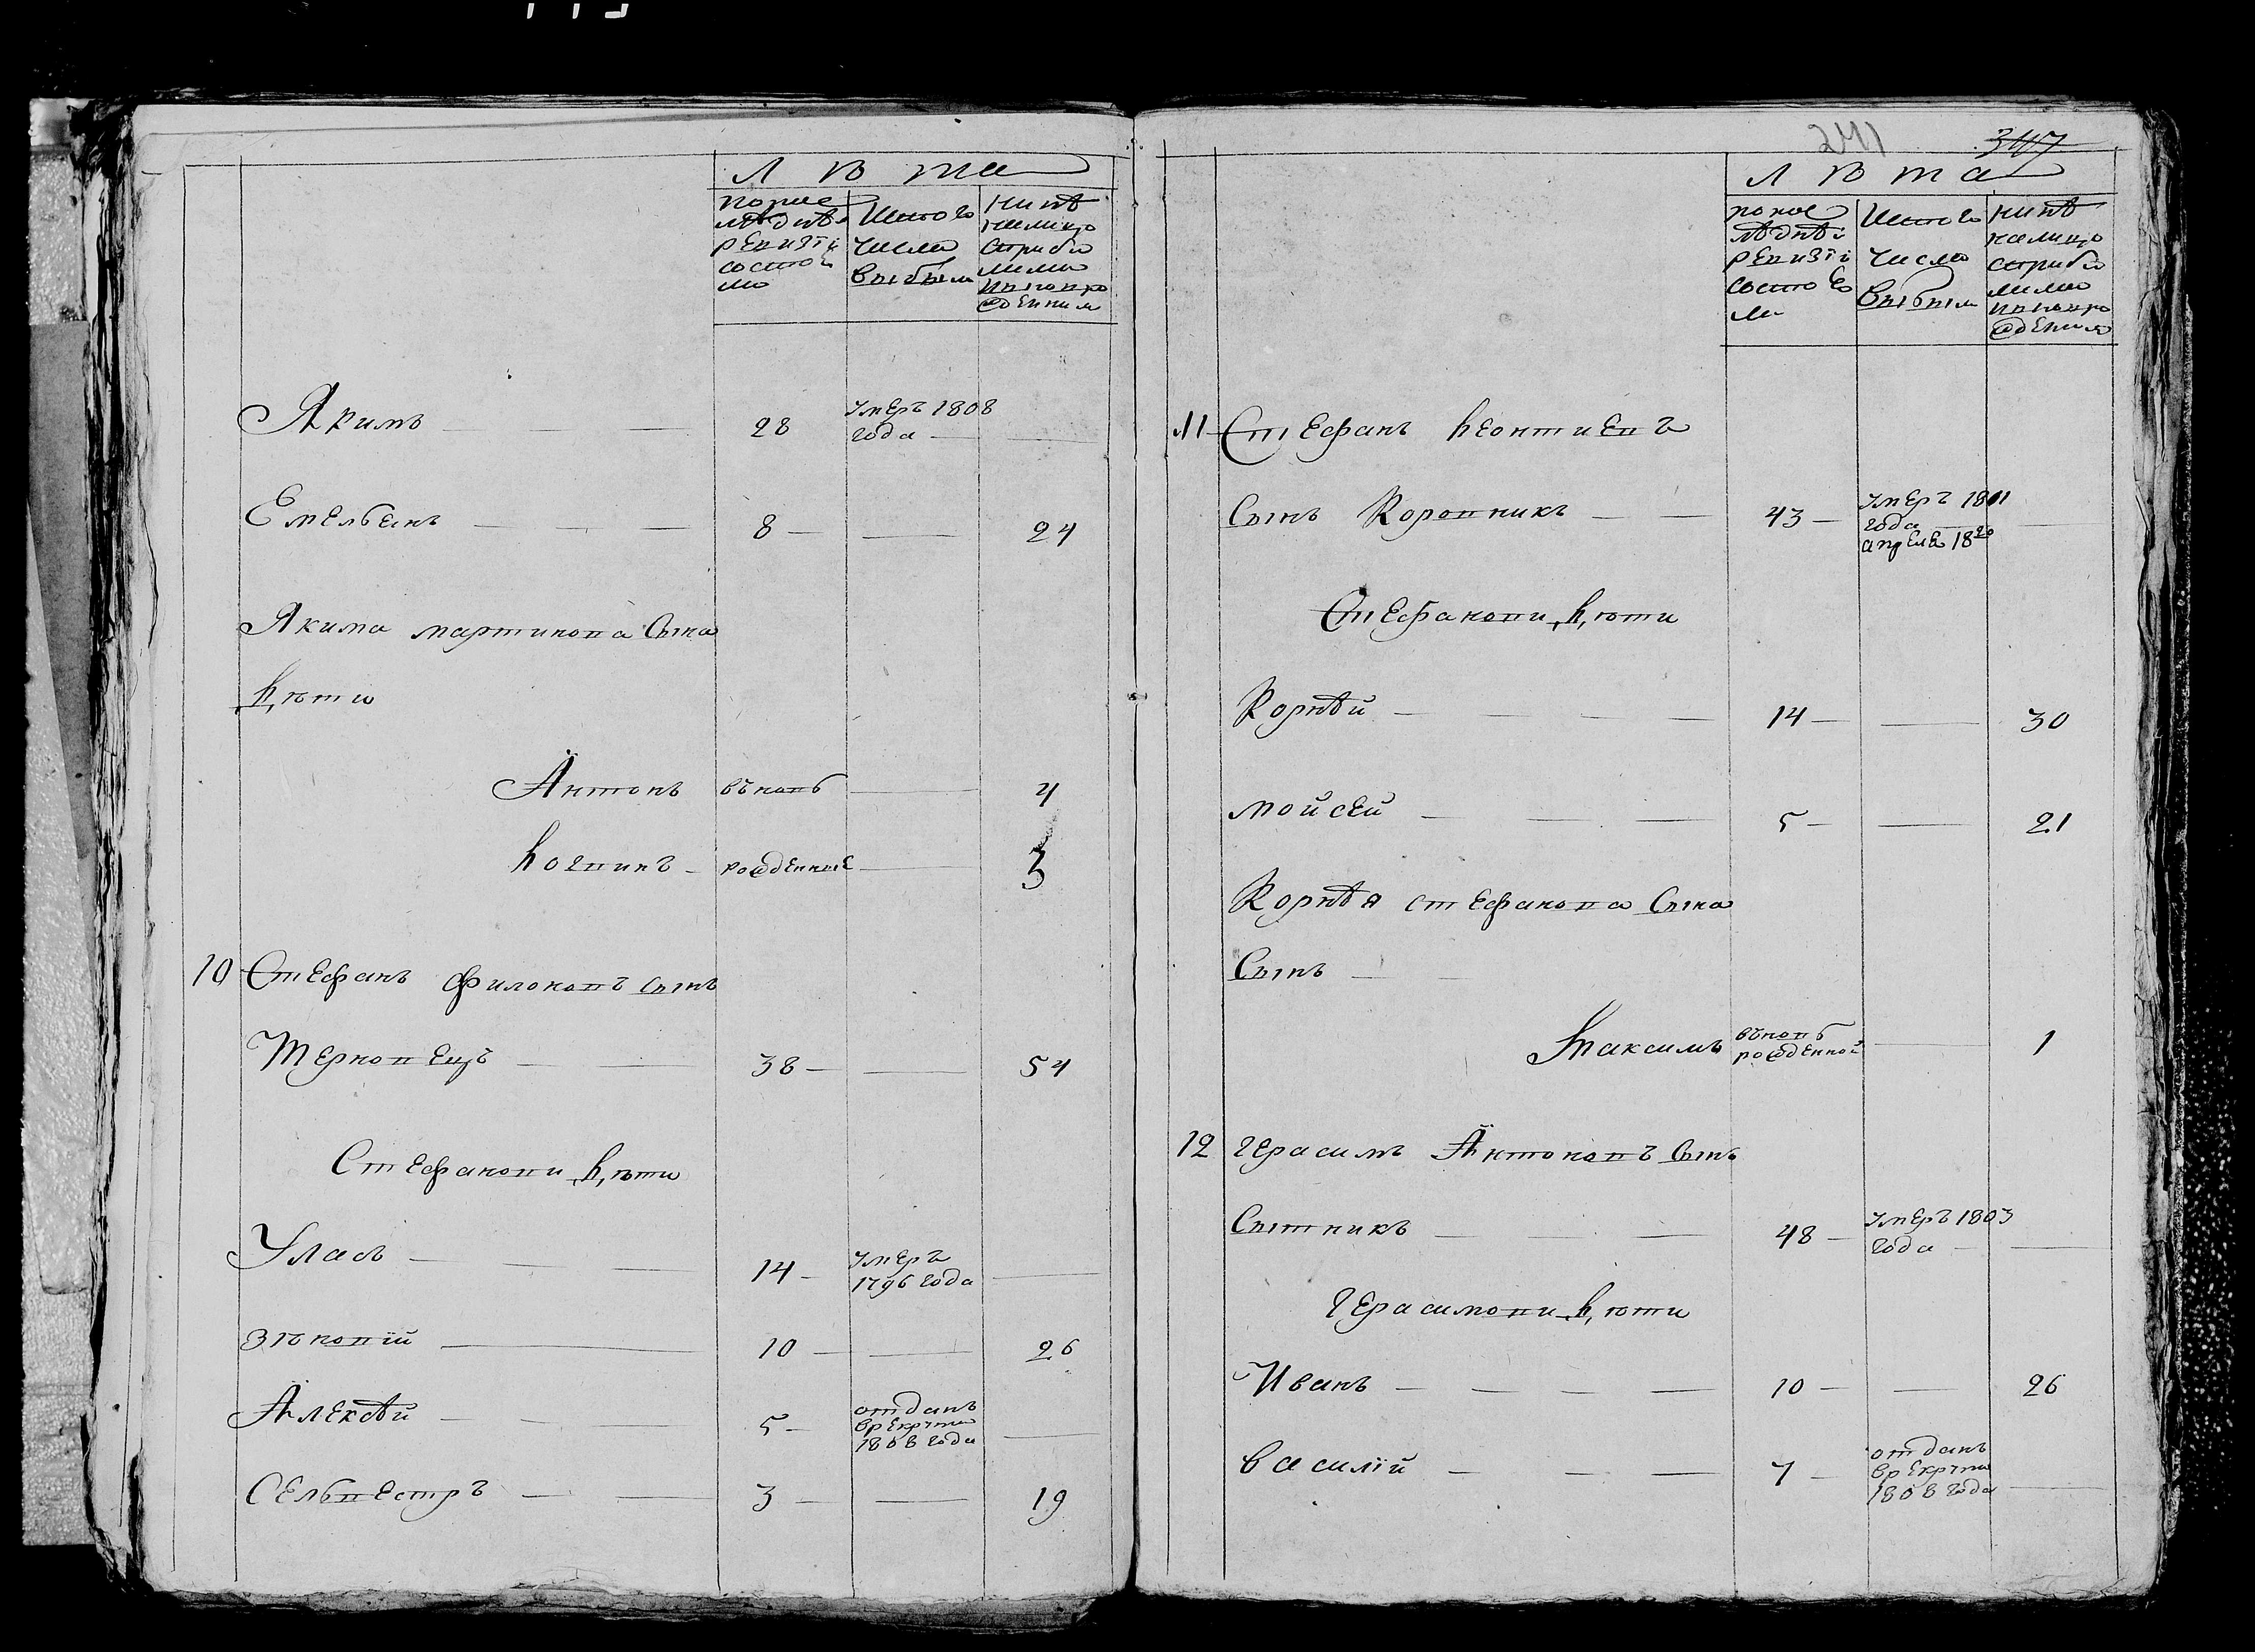 Лѣта
попос
лѣднѣ
ревизіі
состоя
ло
Изтого
числа
выбыло
Нинѣ
налицо
сприбы
лими
иноворо
жденнима
Якимъ 28 умеръ 1808
года
Емельянъ 8 24
Якима мартинова сина
дѣти
Антонъ въновь 4
Логвинъ рожденние 3
10 Стефанъ Филоновъ синъ
Терновецъ 38 54
Стефанови дѣти
Уласъ 14 умеръ
1796 года
Зѣновій 10 26
Алексѣй 5 отданъ
врекруты
1808 года
Сельвестръ 3 19
241 347
Лѣта
попос
лѣднѣі
ревизіі
состоя
ло
Изтого
число
выбыло
Нинѣ
налицо
сприбы
лими
иноворо
ждения
11 Стефанъ Леонтиевъ
Синъ Коровникъ 43 умеръ 1801
года
апреля 18го
Стефанови дѣти
Корнѣй 14 30
Мойсей 5 21
Корнѣя стефанова сина
Синъ
Максимъ вновь
рожденной 1
12 Герасимъ Антоновъ Синъ
Ситникъ 48 умеръ 1803
года
Герасимови дѣти
Иванъ 10 26
Василій 7 отданъ
врекруты
1808 года